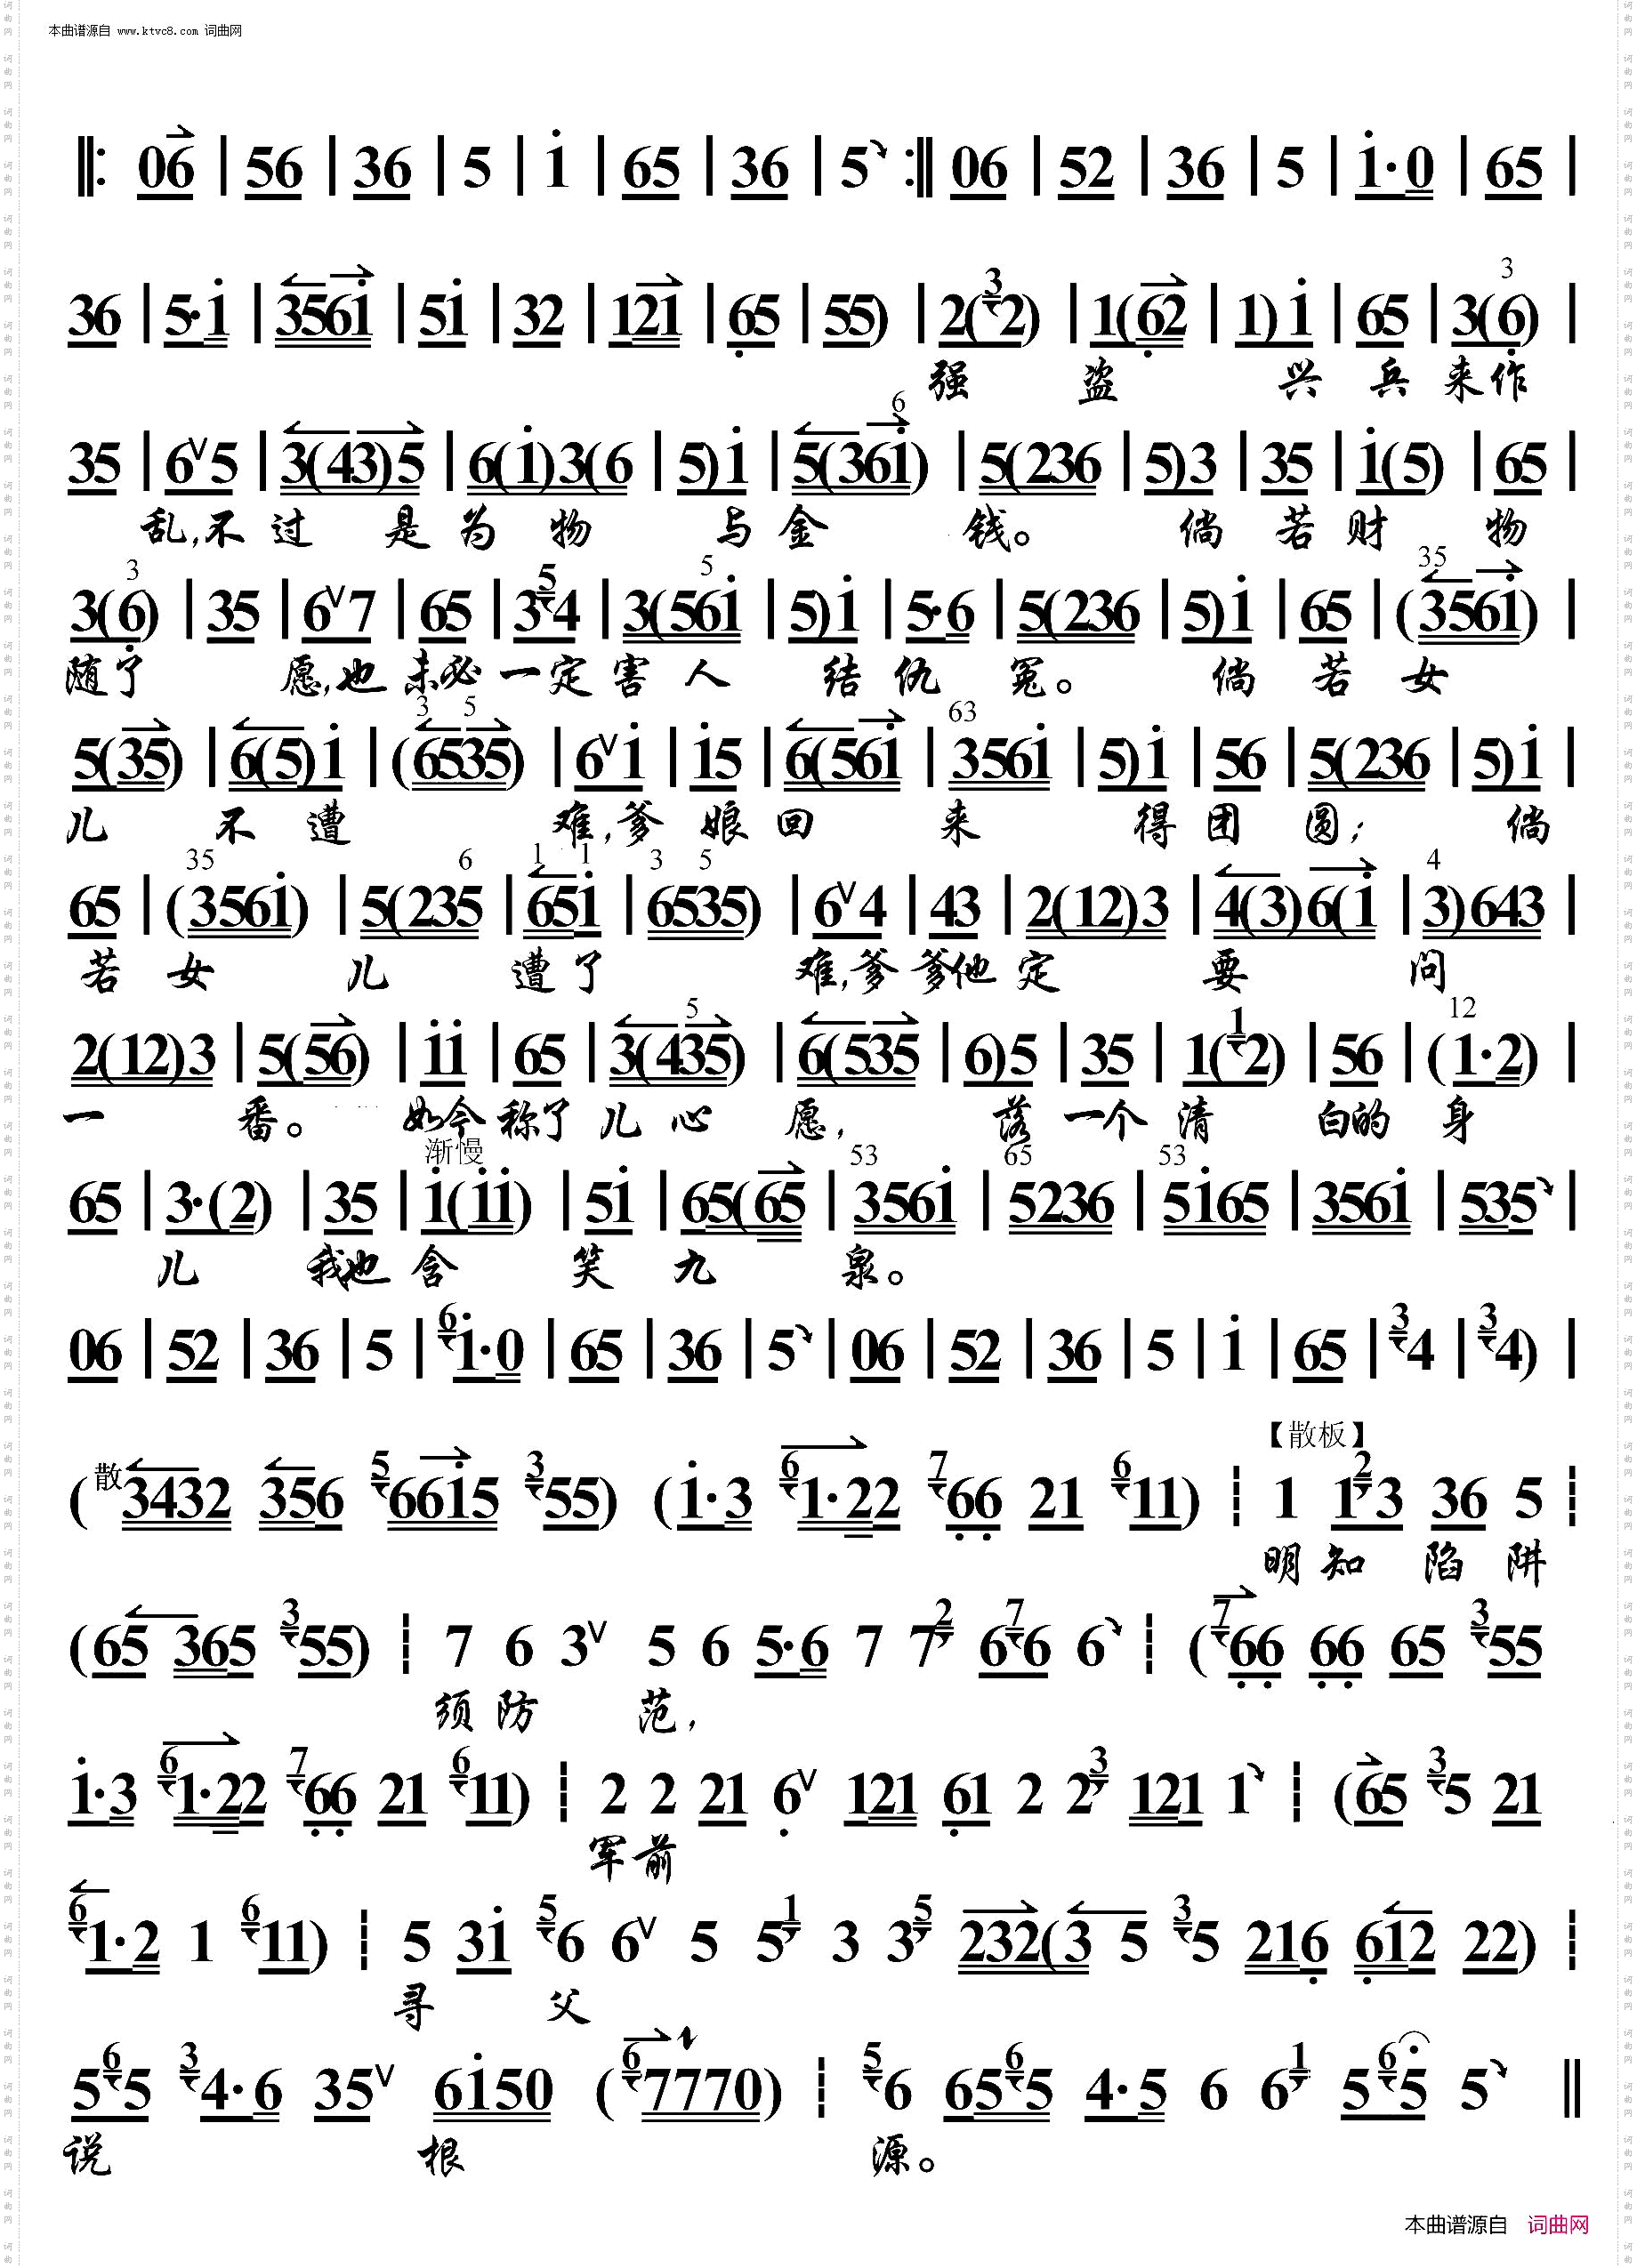 本曲谱源自 www.ktvc8.com 词曲网
‖: 06 | 56 | 36 | 5 | i | 65 | 36 | 5 :‖ 06 | 52 | 36 | 5 | i·0 | 65 |
36 | 5·i | 356i | 5i | 32 | 121 | 65 | 55) | 2(32) | 1(62 | 1)i | 65 | 3(6) |
强 盗 兴 兵 来 作
35 | 6∨5 | 3(43)5 | 6(i)3(6 | 5)i | 5(36i) | 5(236 | 5)3 | 35 | i(5) | 65 |
乱,不 过 是 为 物 与 金 钱。 倘 若 财 物
3(6) | 35 | 6∨7 | 65 | 354 | 3(56i | 5)i | 5·6 | 5(236 | 5)i | 65 | (356i) |
随了 愿,也 未必 一 定 害 人 结 仇 冤。 倘 若 女
5(35) | 6(5)i | (6535) | 6∨i | i5 | 6(56i | 356i | 5)i | 56 | 5(236 | 5)i |
儿 不 遭 难,爹 娘 回 来 得 团 圆; 倘
65 | (356i) | 5(235 | 65i | 6535) | 6∨4 | 43 | 2(12)3 | 4(3)6(i | 3)643 |
若 女 儿 遭 了 难,爹 爹他 定 要 问
2(12)3 | 5(56) | ii | 65 | 3(435) | 6(535 | 6)5 | 35 | 1(12) | 56 | (1·2) |
一 番。 如今 称了 儿 心 愿, 落 一个 清 白的 身
渐慢
65 | 3·(2) | 35 | i(ii) | 5i | 65(65 | 356i | 5236 | 5i65 | 356i | 535 |
儿 我也 含 笑 九 泉。
06 | 52 | 36 | 5 | 6i·0 | 65 | 36 | 5 | 06 | 52 | 36 | 5 | i | 65 | 34 | 34) |
【散板】
(散3432 356 566i5 355) (i·3 61·22 766 21 611) ┊ 1 123 36 5 ┊
明 知 陷 阱
(65 365 355) ┊ 7 6 3∨ 5 6 5·6 7 72 676 6 ┊ (766 66 65 355
须 防 范,
i·3 61·22 766 21 611) ┊ 2 2 21 6∨ 121 61 2 23 121 1 ┊ (65 35 21
军 前
61·2 1 611) ┊ 5 3i 56 6∨ 5 51 3 35 232(3 5 35 216 612 22) ┊
寻 父
565 34·6 35∨ 6i50 (67770) ┊ 56 6565 4·5 6 61 565 5 ‖
说 根 源。
本曲谱源自 词曲网